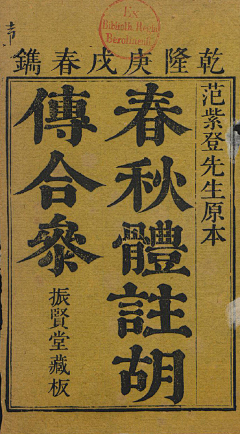 乾隆庚戌春鐫
范紫登先生原本
春秋體註胡
傳合叅
振賢堂藏板
Ex
Biblioth. Regia
Berolinensi.